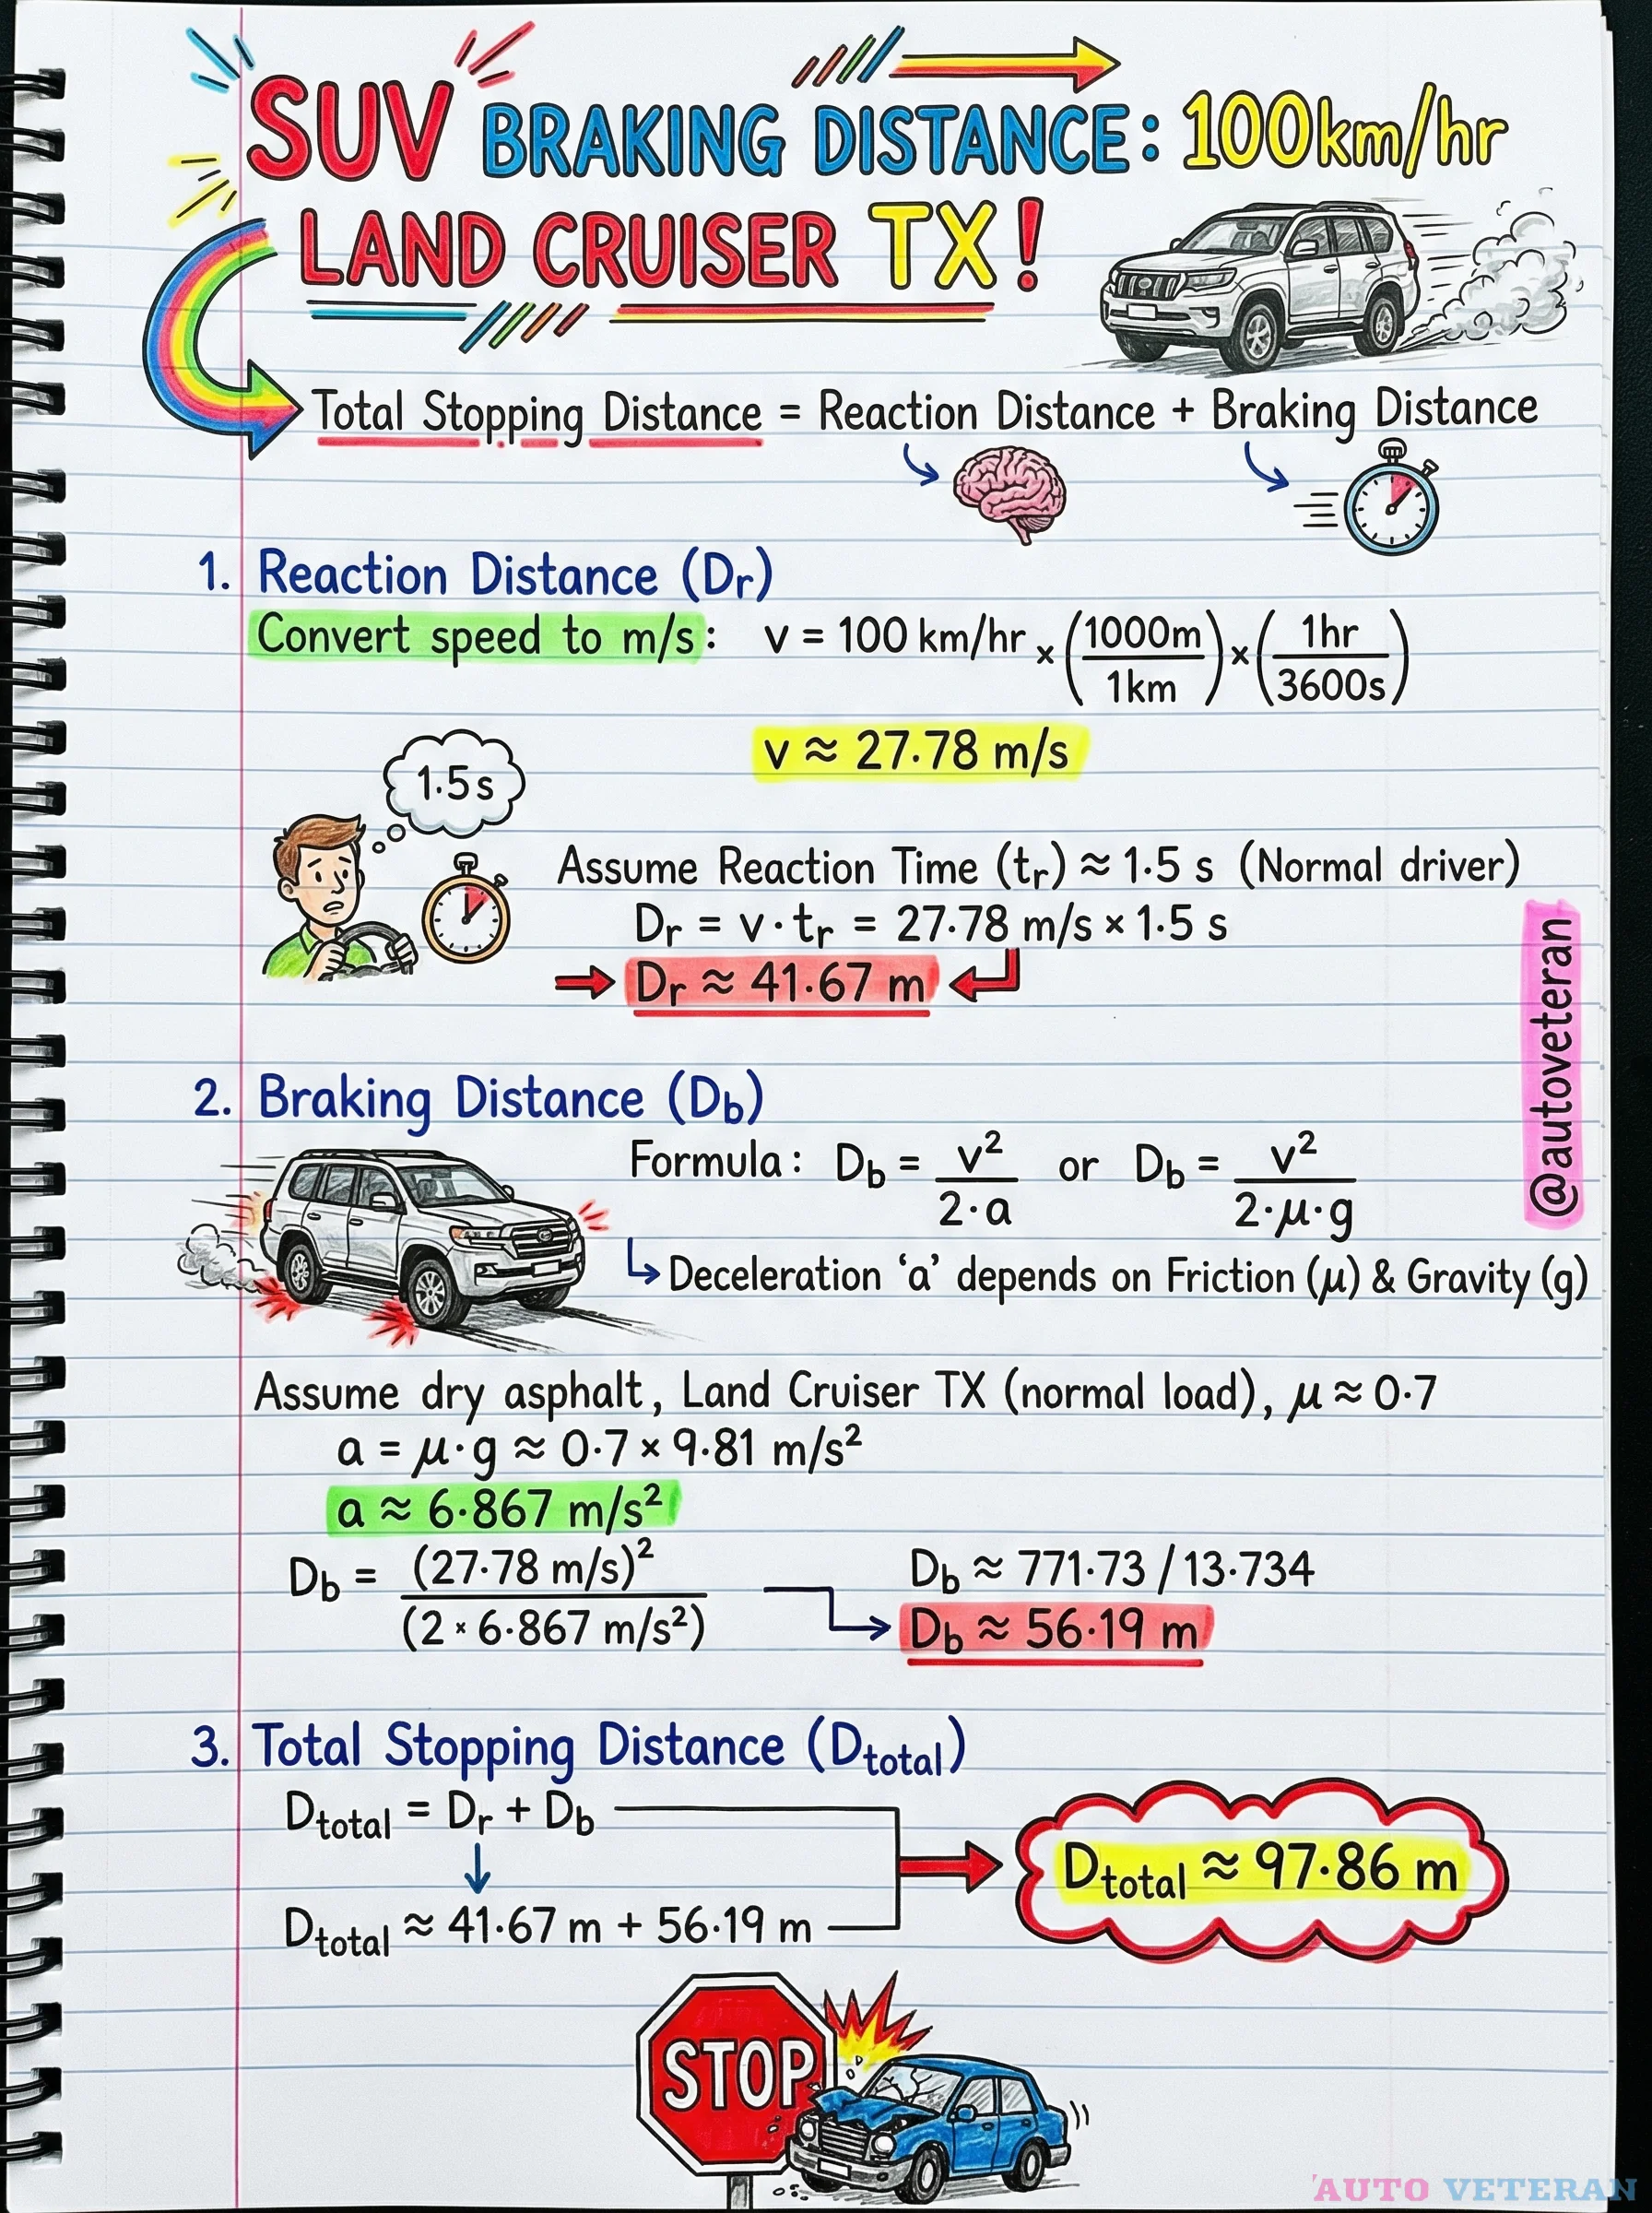 SUV BRAKING DISTANCE: 100km/hr
LAND CRUISER TX!
Total Stopping Distance = Reaction Distance + Braking Distance
1. Reaction Distance (Dr)
Convert speed to m/s: v = 100 km/hr × (1000m/1km) × (1hr/3600s)
v ≈ 27.78 m/s
1.5s
Assume Reaction Time (tr) ≈ 1.5 s (Normal driver)
Dr = v·tr = 27.78 m/s × 1.5 s
Dr ≈ 41.67 m
@autoveteran
2. Braking Distance (Db)
Formula: Db = v²/2·a or Db = v²/2·μ·g
Deceleration ‘a’ depends on Friction (μ) & Gravity (g)
Assume dry asphalt, Land Cruiser TX (normal load), μ ≈ 0.7
a = μ·g ≈ 0.7 × 9.81 m/s²
a ≈ 6.867 m/s²
Db = (27.78 m/s)²/(2 × 6.867 m/s²)
Db ≈ 771.73 / 13.734
Db ≈ 56.19 m
3. Total Stopping Distance (Dtotal)
Dtotal = Dr + Db
Dtotal ≈ 41.67 m + 56.19 m
Dtotal ≈ 97.86 m
STOP
'AUTO VETERAN